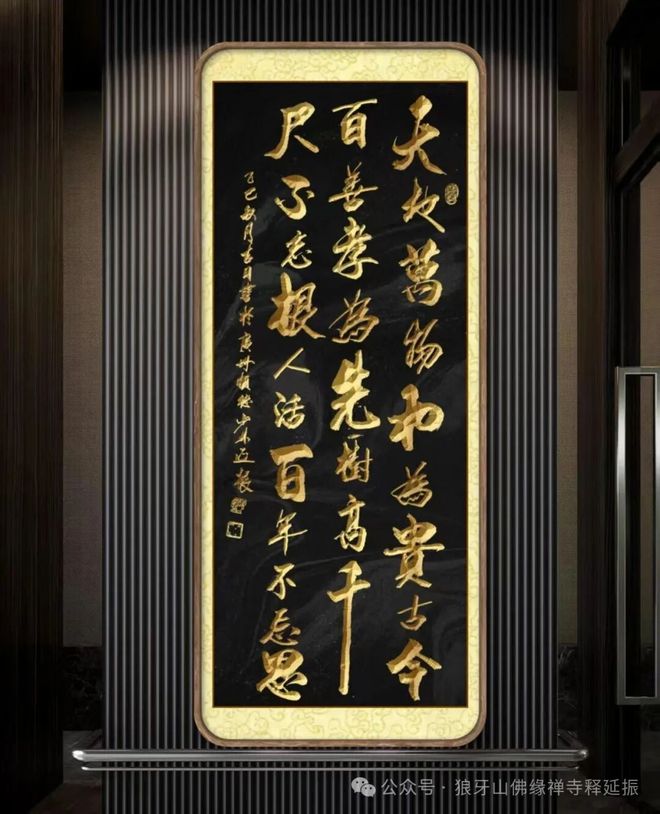 天地萬物和為貴古今
百善孝為先樹高千
尺不忘根人活百年不忘恩
乙巳秋月吉日書於延振
公众号·狼牙山佛缘禅寺释延振